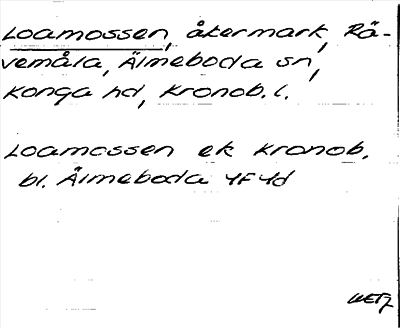 Loamossen, åkermark, Rä-
vemåla, Älmeboda sn,
Konga hd, Kronob. l.
Loamossen ek Kronob.
bl. Älmeboda 4F4d